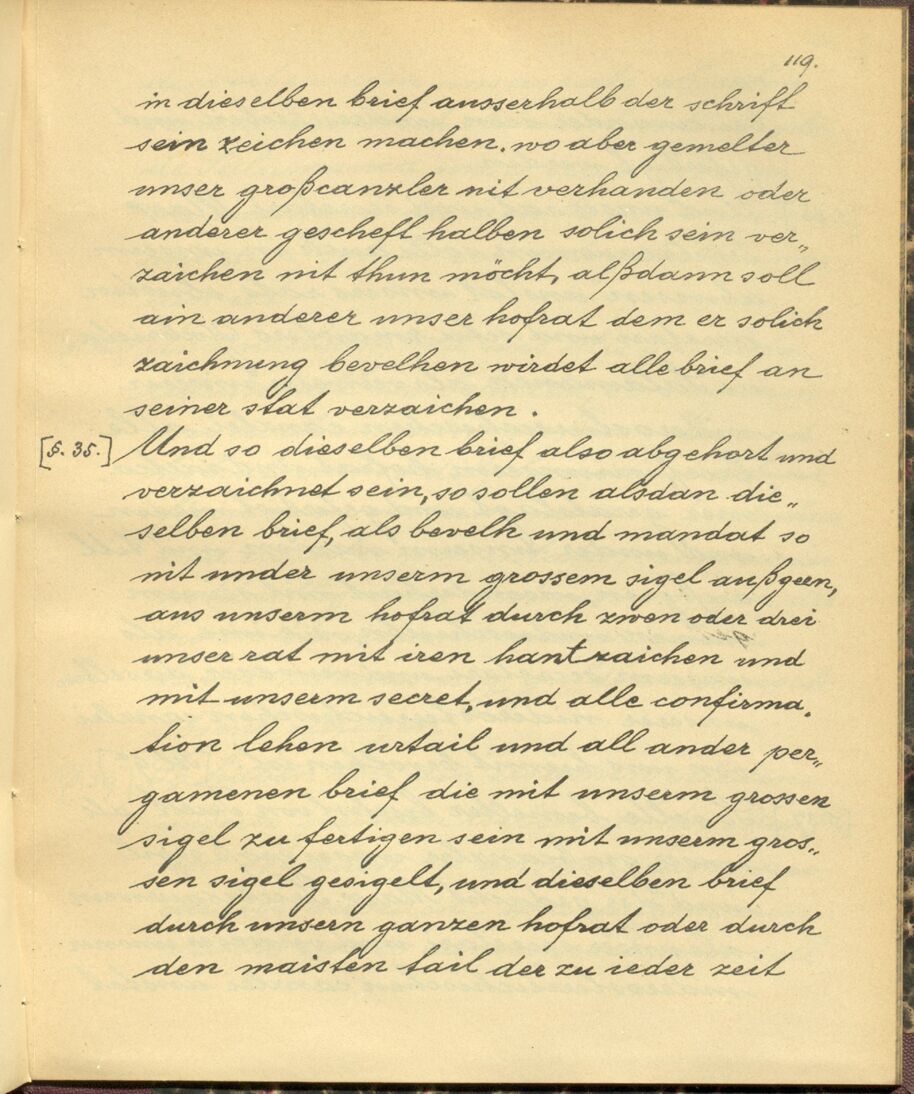 119.
in dieselben brief ausserhalb der schrift
sein zeichen machen. wo aber gemelter
unser großcanzler nit verhanden oder
anderer gescheft halben solich sein ver„
zaichen nit thun möcht, alßdann soll
ain anderer unser hofrat dem er solich
zaichnung bevelhen wirdet alle brief an
seiner stat verzaichen.
[§. 35.] Und so dieselben brief also abgehort und
verzaichnet sein, so sollen alsdan die„
selben brief, als bevelh und mandat so
nit under unserm grossem sigel außgeen,
aus unserm hofrat durch zwen oder drei
unser rat mit iren hantzaichen und
mit unserm secret, und alle confirma„
tion lehen urtail und all ander per„
gamenen brief die mit unserm grossen
sigel zu fertigen sein mit unserm gros„
sen sigel gesigelt, und dieselben brief
durch unsern ganzen hofrat oder durch
den maisten tail der zu ieder zeit